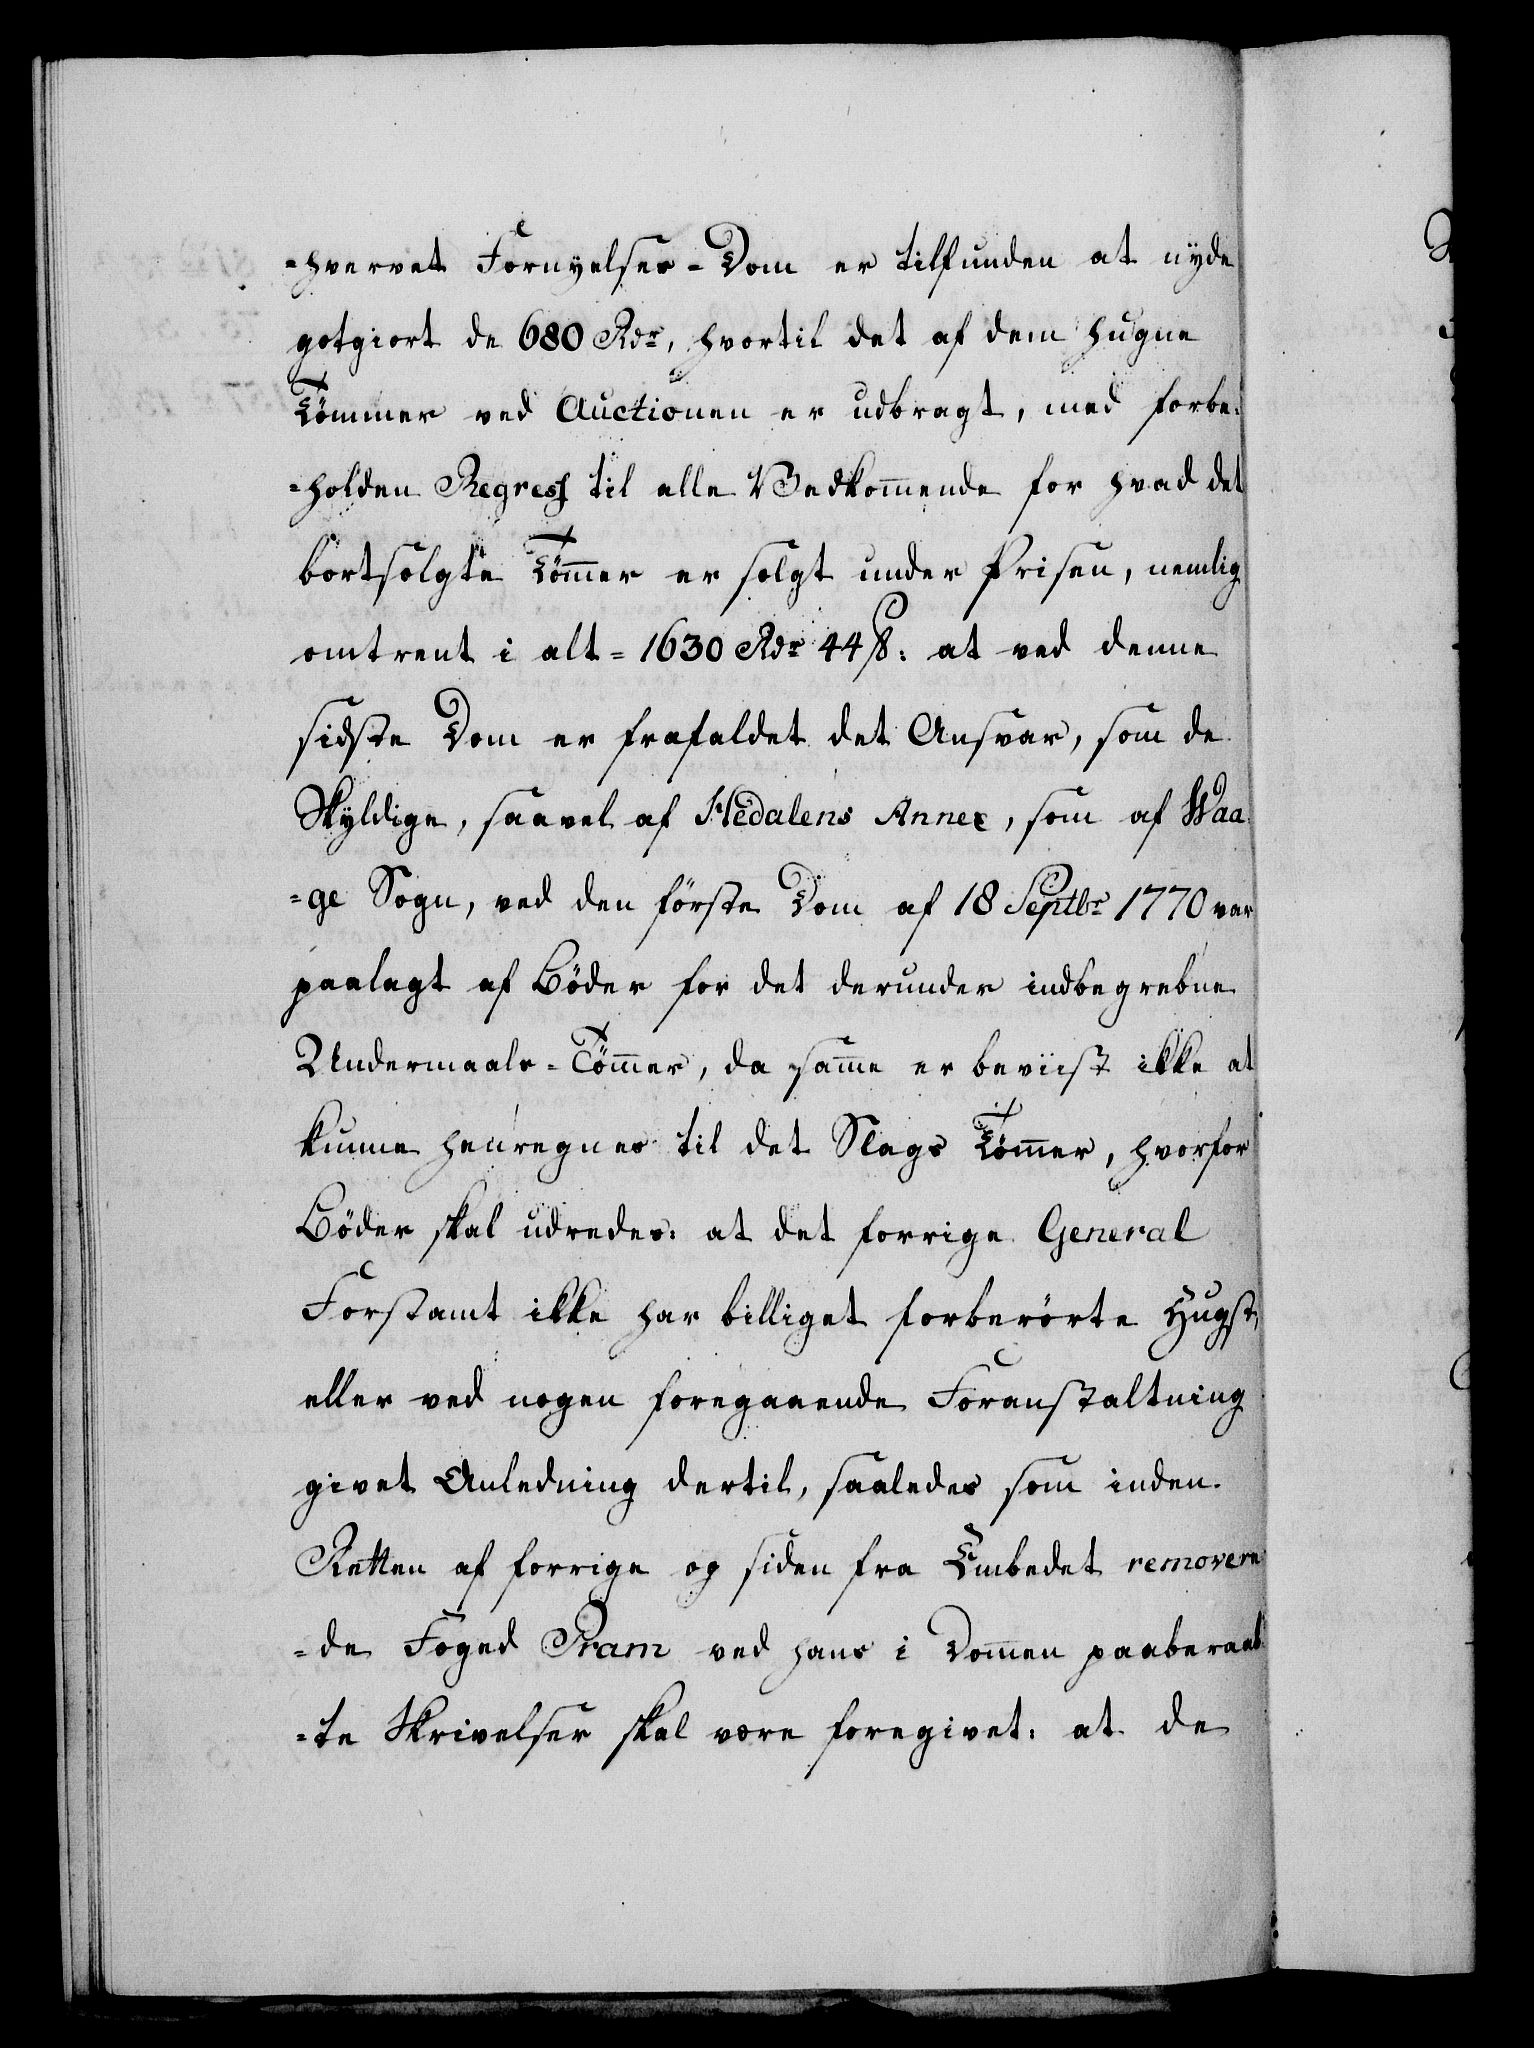 =hvervet Fornyelses-Dom er tilfunden at nyde
gotgiort de 680 Rdr, hvortil det af dem hugne
Tömmer ved Auctionen er udbragt, med forbe=
=holden Regress til alle Vedkom̅ende for hvad det
bortsolgte Töm̅er er solgt under Prisen, nemlig
omtrent i alt = 1630 Rdr 44 ß: at ved denne
sidste Dom er frafaldet det Ansvar, som de
Skyldige, saavel af Hedalens Annex, som af Waa
=ge Sogn, ved den förste Dom af 18 Septbr 1770 var
paalagt af Böder for det derunder indbegrebne
Undermaals-Töm̅er, da sam̅e er beviist ikke at
kunne henregnes til det Slags Töm̅er, hvorfor
Böder skal udredes: at det forrige General
Forstamt ikke har billiget forberörte Hugst,
eller ved nogen foregaaende Foranstaltning
givet Anledning dertil, saaledes som inden
Retten af forrige og siden fra Embedet removere
=de Foged Pram ved hans i Dom̅en paaberaab
=te Skrivelser skal være foregivet: at de